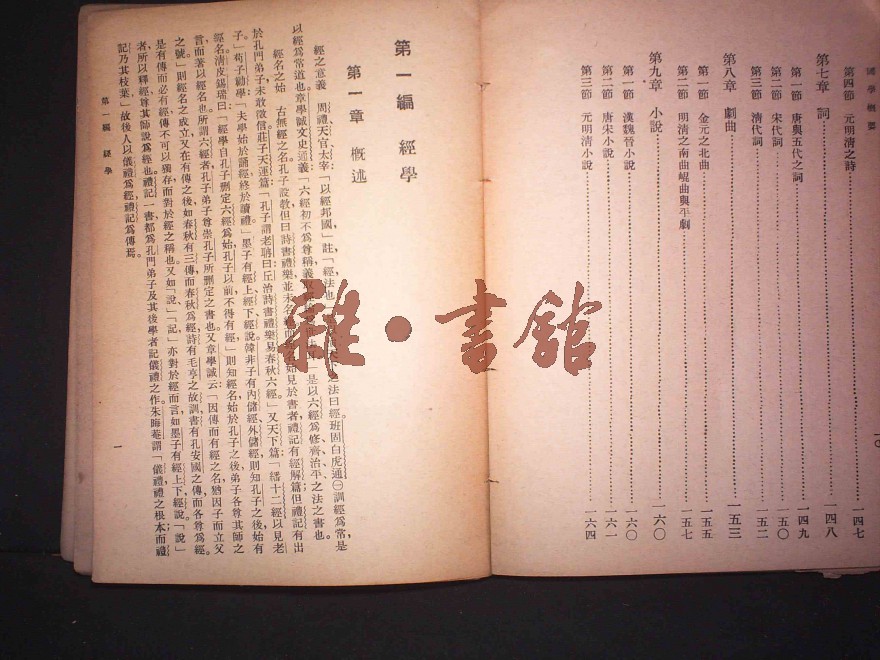 國學概要
一〇
第四節 元明清之詩 一四七
第七章 詞 一四八
第一節 唐與五代之詞 一四九
第二節 宋代詞 一五〇
第三節 清代詞 一五二
第八章 劇曲 一五三
第一節 金元之北曲 一五五
第二節 明清之南曲崐曲與平劇 一五七
第九章 小說 一六〇
第一節 漢魏晉小說 一六〇
第二節 唐宋小說 一六一
第三節 元明清小說 一六四
第一編 經學
第一章 概述
經之意義 周禮天官太宰「以經邦國」註「經法也 之法曰經班固白虎通㊀訓經爲常是
以經爲常道也章學誠文史通義「六經初不爲尊稱義 」是以六經爲修齊治平之法之書也
經名之始 古無經之名孔子設教但曰詩書禮樂並未名 名始見於書者禮記有經解篇但禮記有出
於孔門弟子未敢徵信莊子天運篇「孔子謂老聃曰丘治詩書禮樂易春秋六經」又天下篇「繙十二經以見老
子」荀子勸學「夫學始於誦經終於讀禮」墨子有經上經下經說韓非子有內儲經外儲經則知孔子之後始有
經名淸皮錫瑞曰「經學自孔子刪定六經爲始孔子以前不得有經」則知經名始於孔子之後弟子各尊其師之
言而著以經名也所謂六經者孔子弟子尊崇孔子所刪定之書也又章學誠云「因傳而有經之名猶因子而立父
之號」則經名之成立又在有傳之後如春秋有三傳而春秋爲經詩有毛亨之故訓書有孔安國之傳而各尊爲經
是有傳而必有經傳不可以獨存而對於經之稱也又如「說」「記」亦對於經而言如墨子有經上下經說「說」
者所以釋經尊其師說爲經也禮記一書都爲孔門弟子及其後學者記儀禮之作朱晦菴謂「儀禮禮之根本而禮
記乃其枝葉」故後人以儀禮爲經禮記爲傳焉
第一編 經學
一
雜·書館